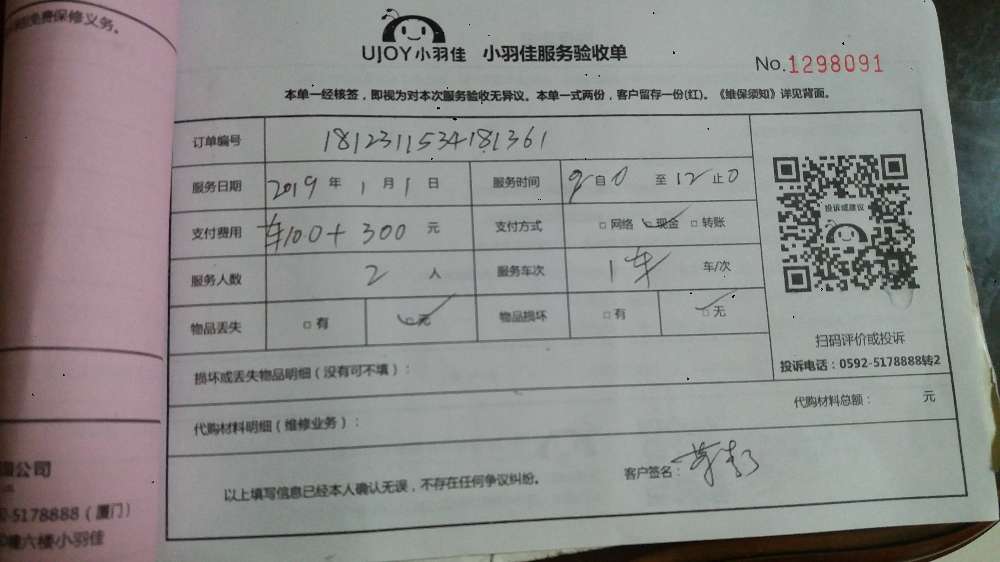 免费保修义务。
UJOY小羽佳 小羽佳服务验收单
No.1298091
本单一经核签，即视为对本次服务验收无异议。本单一式两份，客户留存一份(红)。《维保须知》详见背面。
订单编号 1812311534181361
服务日期 2019 年 1 月 1 日 服务时间 9 自 0 至 12 止 0
支付费用 车100+300 元 支付方式 □网络 □现金 □转账
服务人数 2 人 服务车次 1车 车/次
物品丢失 □有 □无 物品损坏 □有 □无
投诉或建议
扫码评价或投诉
投诉电话：0592-5178888转2
损坏或丢失物品明细（没有可不填）：
代购材料明细（维修业务）： 代购材料总额： 元
以上填写信息已经本人确认无误，不存在任何争议纠纷。 客户签名：
公司
-5178888（厦门）
六楼·小羽佳